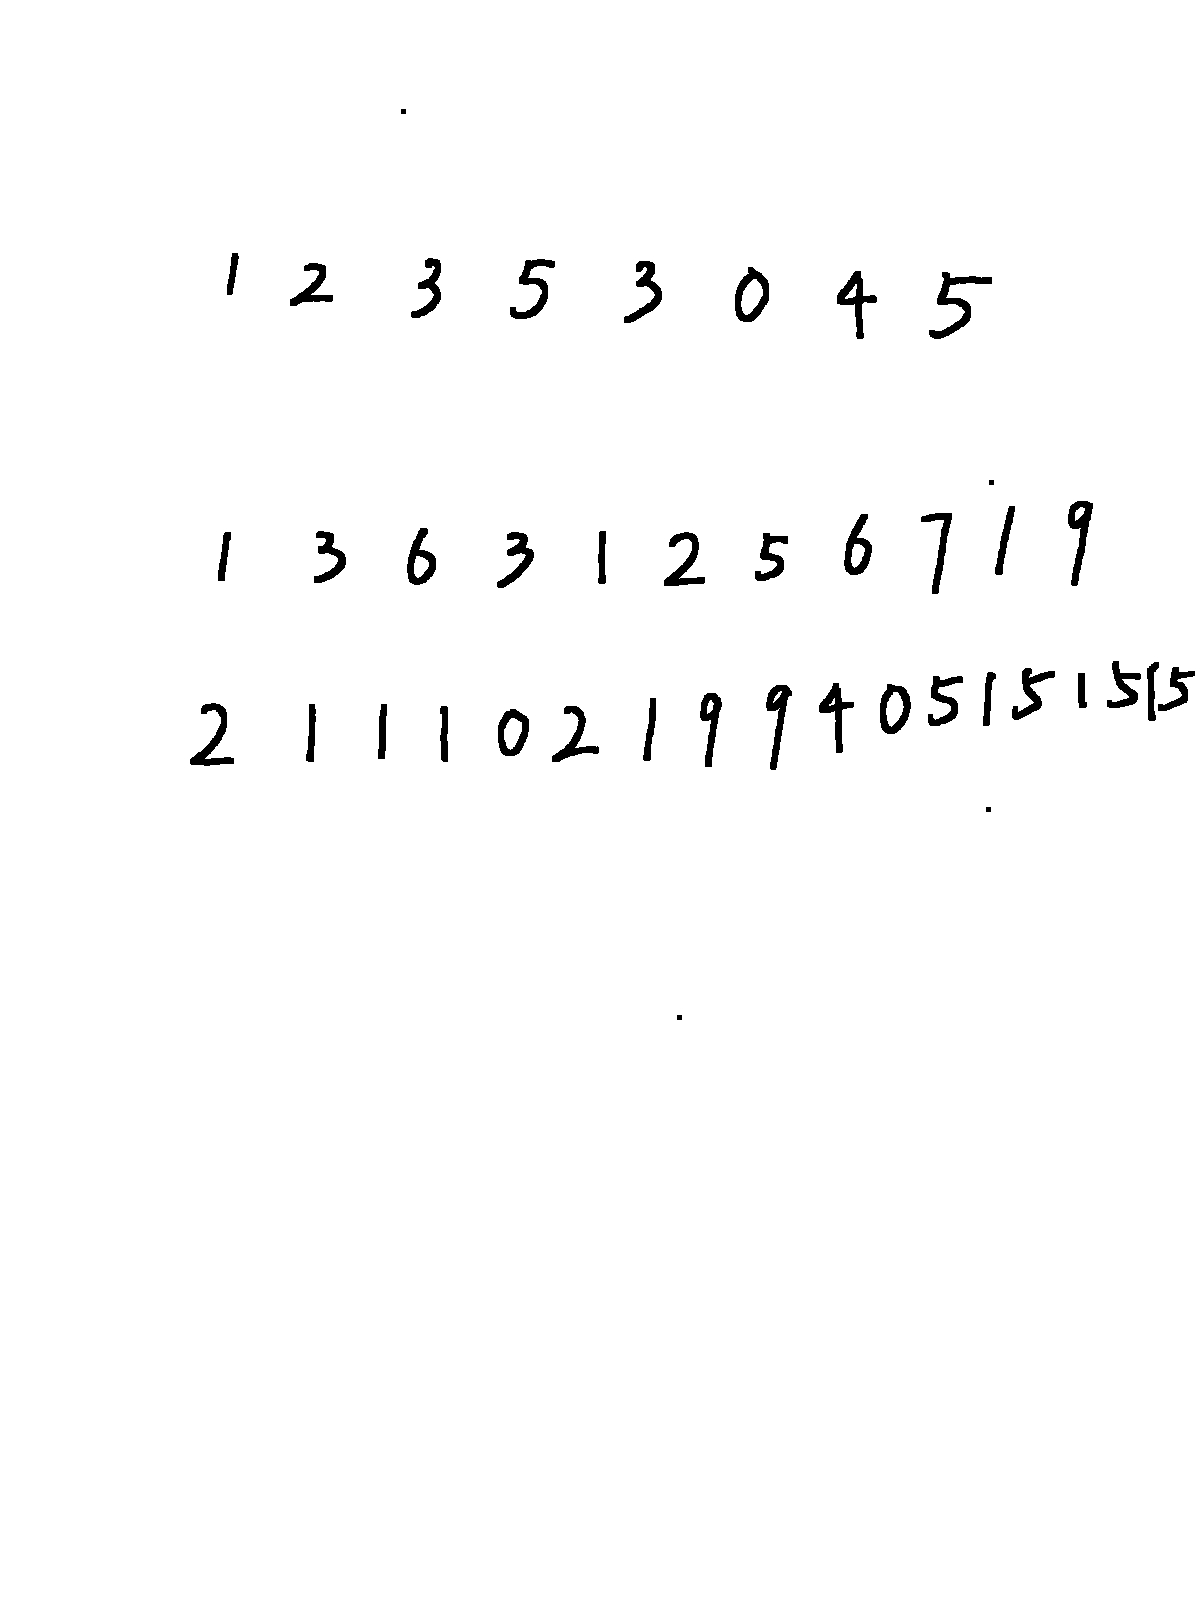 1 2 3 5 3 0 4 5
1 3 6 3 1 2 5 6 7 1 9
2 1 1 1 0 2 1 9 9 4 0 5 1 5 1 5 1 5